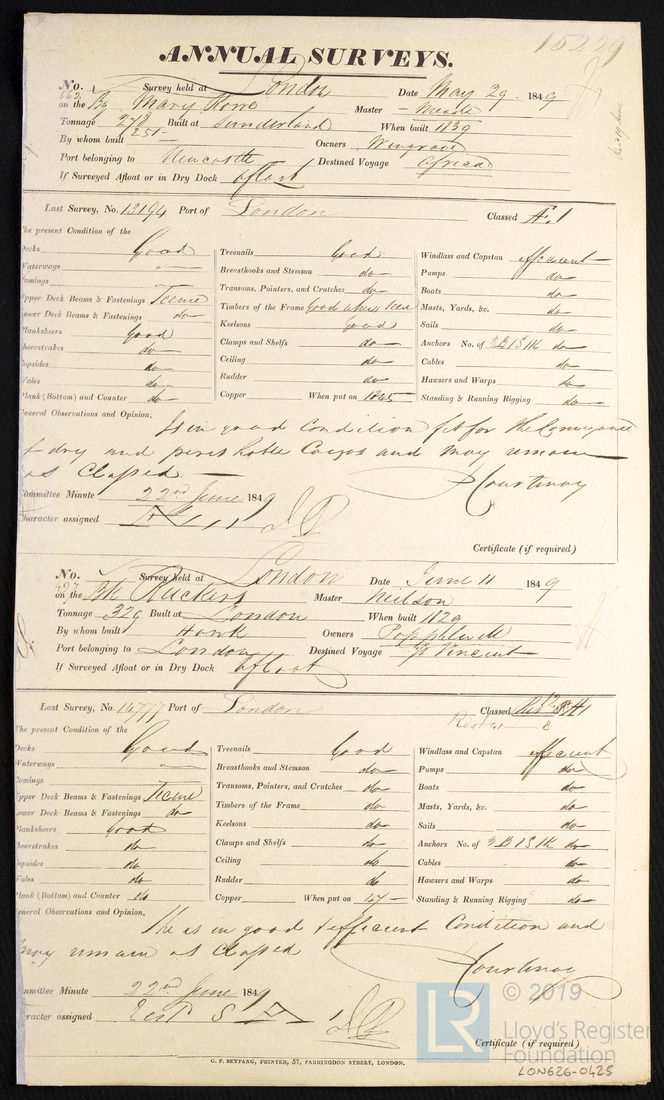 15229
ANNUAL SURVEYS.
No. 562 Survey held at London Date May 29 1849
on the Bg Mary Rowe Master Meade
Tonnage 278 Built at Sunderland When built 1839
By whom built 251 Owners Wingrave
Port belonging to Newcastle Destined Voyage Africa
If Surveyed Afloat or in Dry Dock afloat
Last Survey, No. 13194 Port of London Classed Æ.1
The present Condition of the
Decks Good Treenails Good Windlass and Capstan efficient
Waterways Breasthooks and Stemson do Pumps do
Comings Transoms, Pointers, and Crutches do Boats do
Upper Deck Beams & Fastenings Timbers of the Frame Good where seen Masts, Yards, &c. do
Lower Deck Beams & Fastenings do Keelsons good Sails do
Planksheers Good Clamps and Shelfs do Anchors No. of 3B1S1K do
Sheerstrakes do Ceiling do Cables do
Topsides do Rudder do Hawsers and Warps do
Wales do Copper When put on 1845 Standing & Running Rigging do
Plank (Bottom) and Counter do
General Observations and Opinion,
Is in good Condition fit for the Conveyance
of dry and perishable Cargos and may remain
as Classed
Courtenay
Committee Minute 22nd June 1849
Character assigned
Certificate (if required)
No. 497 Survey held at London Date June 11 1849
on the Bk Rucker Master Neilson
Tonnage 329 Built at London When built 1829
By whom built Owners Popplewell
Port belonging to London Destined Voyage St Vincent
If Surveyed Afloat or in Dry Dock afloat
Last Survey, No. 14777 Port of London Classed
The present Condition of the
Decks Good Treenails Good Windlass and Capstan efficient
Waterways Breasthooks and Stemson do Pumps do
Comings Transoms, Pointers, and Crutches do Boats do
Upper Deck Beams & Fastenings Timbers of the Frame do Masts, Yards, &c. do
Lower Deck Beams & Fastenings do Keelsons do Sails do
Planksheers Good Clamps and Shelfs do Anchors No. of 3B1S1K do
Sheerstrakes do Ceiling do Cables do
Topsides do Rudder do Hawsers and Warps do
Wales do Copper When put on 47 Standing & Running Rigging do
Plank (Bottom) and Counter do
General Observations and Opinion,
She is in good & efficient Condition and
may remain as Classed
Courtenay
Committee Minute 22nd June 1849
Character assigned
Certificate (if required)
G. F. SEYFANG, PRINTER, 57, FARRINGDON STREET, LONDON.
LR © 2019
Lloyd's Register
Foundation
LON626-0425